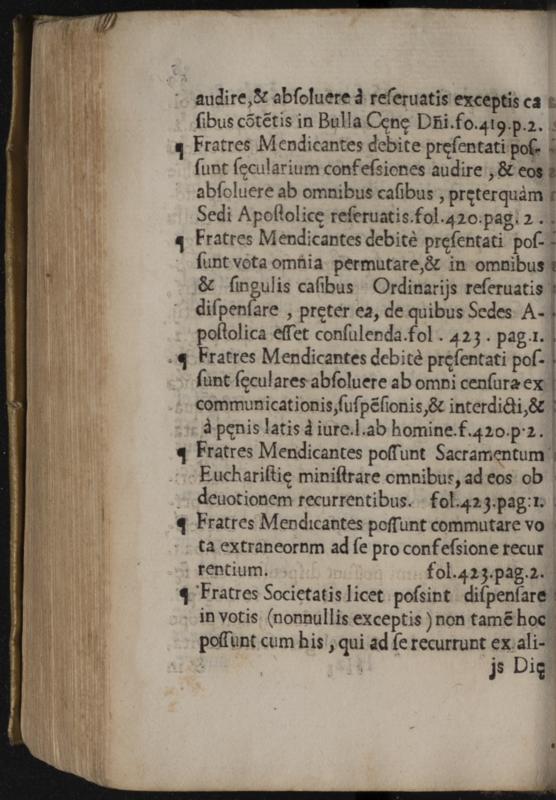 audire,& absoluere à reseruatis exceptis ca
sibus cõtẽtis in Bulla Cęnę Dñi.fo.419.p.2.
¶ Fratres Mendicantes debite pręsentati pos-
sunt sęcularium confessiones audire , & eos
absoluere ab omnibus casibus , pręterquàm
Sedi Apostolicę reseruatis.fol.420.pag. 2 .
¶ Fratres Mendicantes debitè pręsentati pos-
sunt vota omnia permutare,& in omnibus
& singulis casibus Ordinarijs reseruatis
dispensare , pręter ea, de quibus Sedes A-
postolica esset consulenda.fol . 423 . pag.1.
¶ Fratres Mendicantes debitè pręsentati pos-
sunt sęculares absoluere ab omni censura ex
communicationis,suspẽsionis,& interdicti,&
à pęnis latis à iure.l.ab homine.f.420.p.2.
¶ Fratres Mendicantes possunt Sacramentum
Eucharistię ministrare omnibus, ad eos ob
deuotionem recurrentibus. fol.423.pag:1.
¶ Fratres Mendicantes possunt commutare vo
ta extraneornm ad se pro confessione recur
rentium. fol.423.pag.2.
¶ Fratres Societatis licet possint dispensare
in votis (nonnullis exceptis ) non tamẽ hoc
possunt cum his , qui ad se recurrunt ex ali-
js Dię